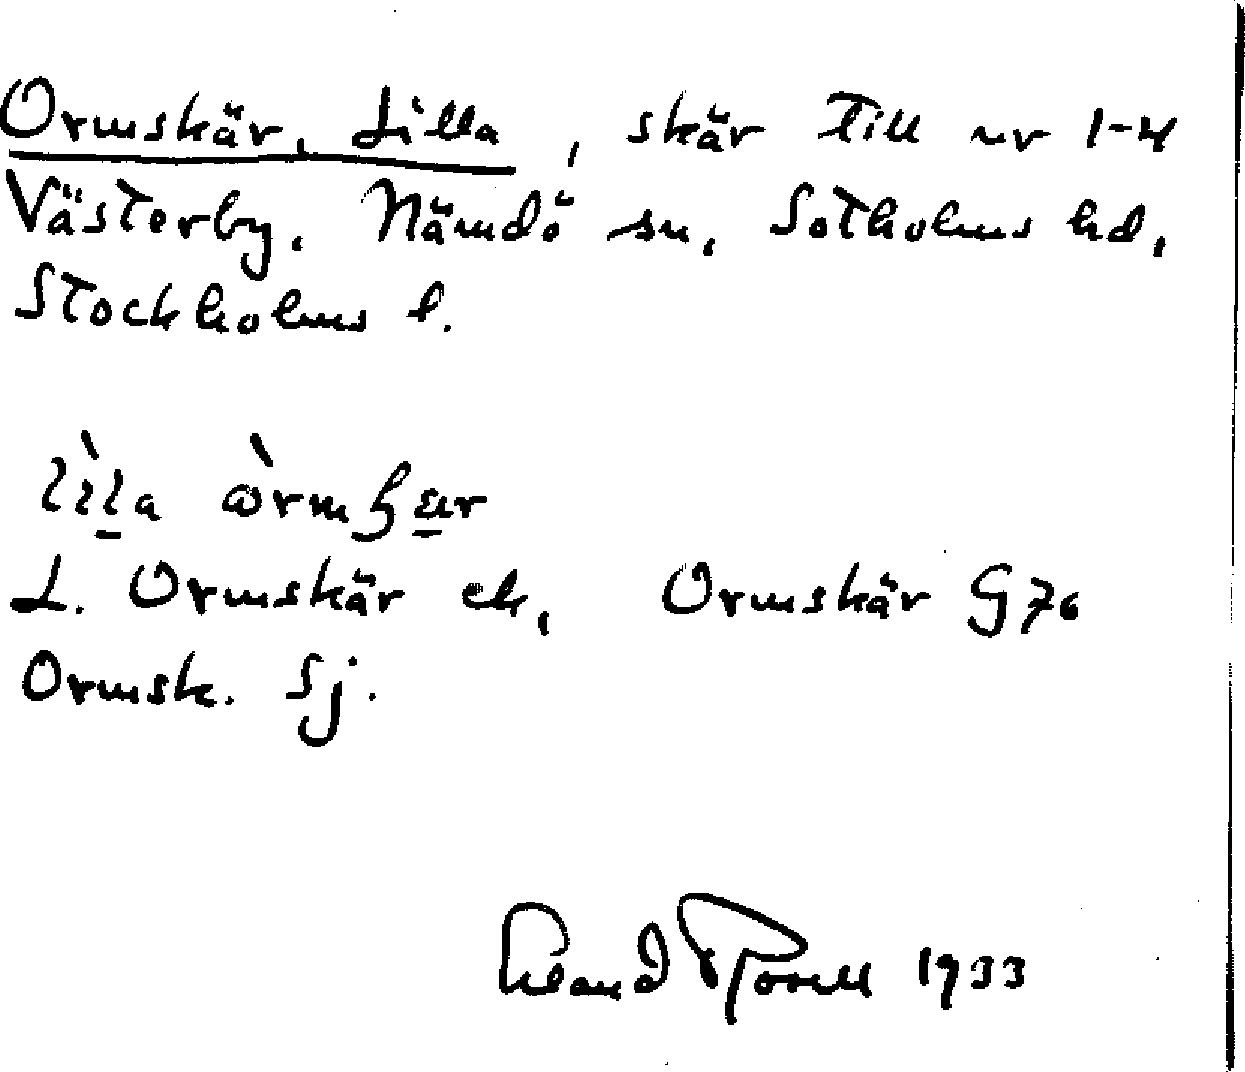 Ormskär, Lilla, skär till nr 1-4
Västerby, Nämdö sn, Sotholms hd,
Stockholms l.
L. Ormskär ek, Ormskär G 76
Ormsk. Sj.
1933